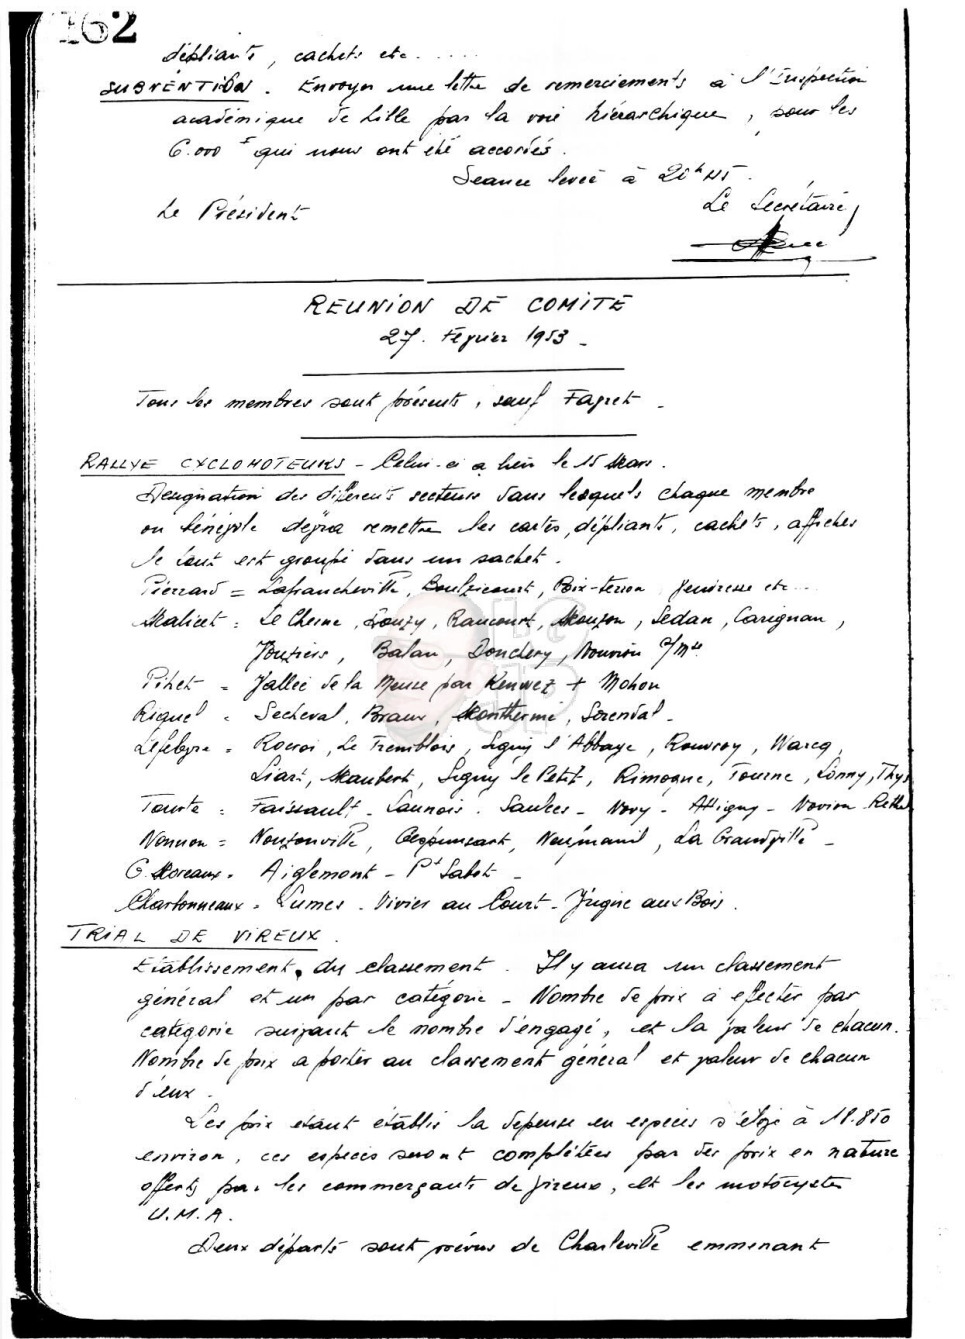 162
dépliants, cachets etc.....
SUBVENTION. Envoyer une lettre de remerciements à l'Inspection
académique de Lille par la voie hiérarchique, pour les
6.000 F qui nous ont été accordés.
Séance levée à 20h45.
Le Président
Le Secrétaire
REUNION DE COMITE
27. Février 1953 -
Tous les membres sont présents, sauf Fagret -
RALLYE CYCLOMOTEURS - Celui-ci a lieu le 15 Mars.
Designation des diférents secteurs dans lesquels chaque membre
ou bénévole devra remettre les cartes, dépliants, cachets, affiches
le tout est groupé dans un sachet.
Pierrard = Lafrancheville, Boulzicourt, Poix-terron, etc...
Malicet = Le Chesne, Douzy, Raucourt, Mouzon, Sedan, Carignan,
Vouziers, Balan, Donchery, Nouvion s/Mse
Pihet = Vallée de la Meuse par Renwez + Mohon
Riquel = Secheval, Braux, Montherme, Sorendal -
Lefebvre = Rocroi, Le Tremblois, Signy l'Abbaye, Rouvroy, Warcq,
Liart, Maubert, Signy le Petit, Rimogne, Tourne, Lonny, This
Tourte = Faissault - Launois - Saulces - Novy - Attigny - Novion - Rethel
Nonnon = Nouzonville, Gespunsart, Neufmanil, La Grandville -
G. Moreaux = Aiglemont - Pt Sabot -
Charbonneaux = Lumes - Vivier au Court - Vrigne aux Bois.
TRIAL DE VIREUX.
Etablissement du classement. Il y aura un classement
général et un par catégorie - Nombre de prix à efecter par
catégorie suivant le nombre d'engagé, et la valeur de chacun.
Nombre de prix a porter au classement général et valeur de chacun
d'eux.
Les prix etant établis la depense en espèces s'élève à 18.850
environ, ces espèces seront complétées par des prix en nature
offerts par les commerçants de Vireux, et les motocycles
U.M.A.
Deux départs sont prévus de Charleville emmenant
LG
JP